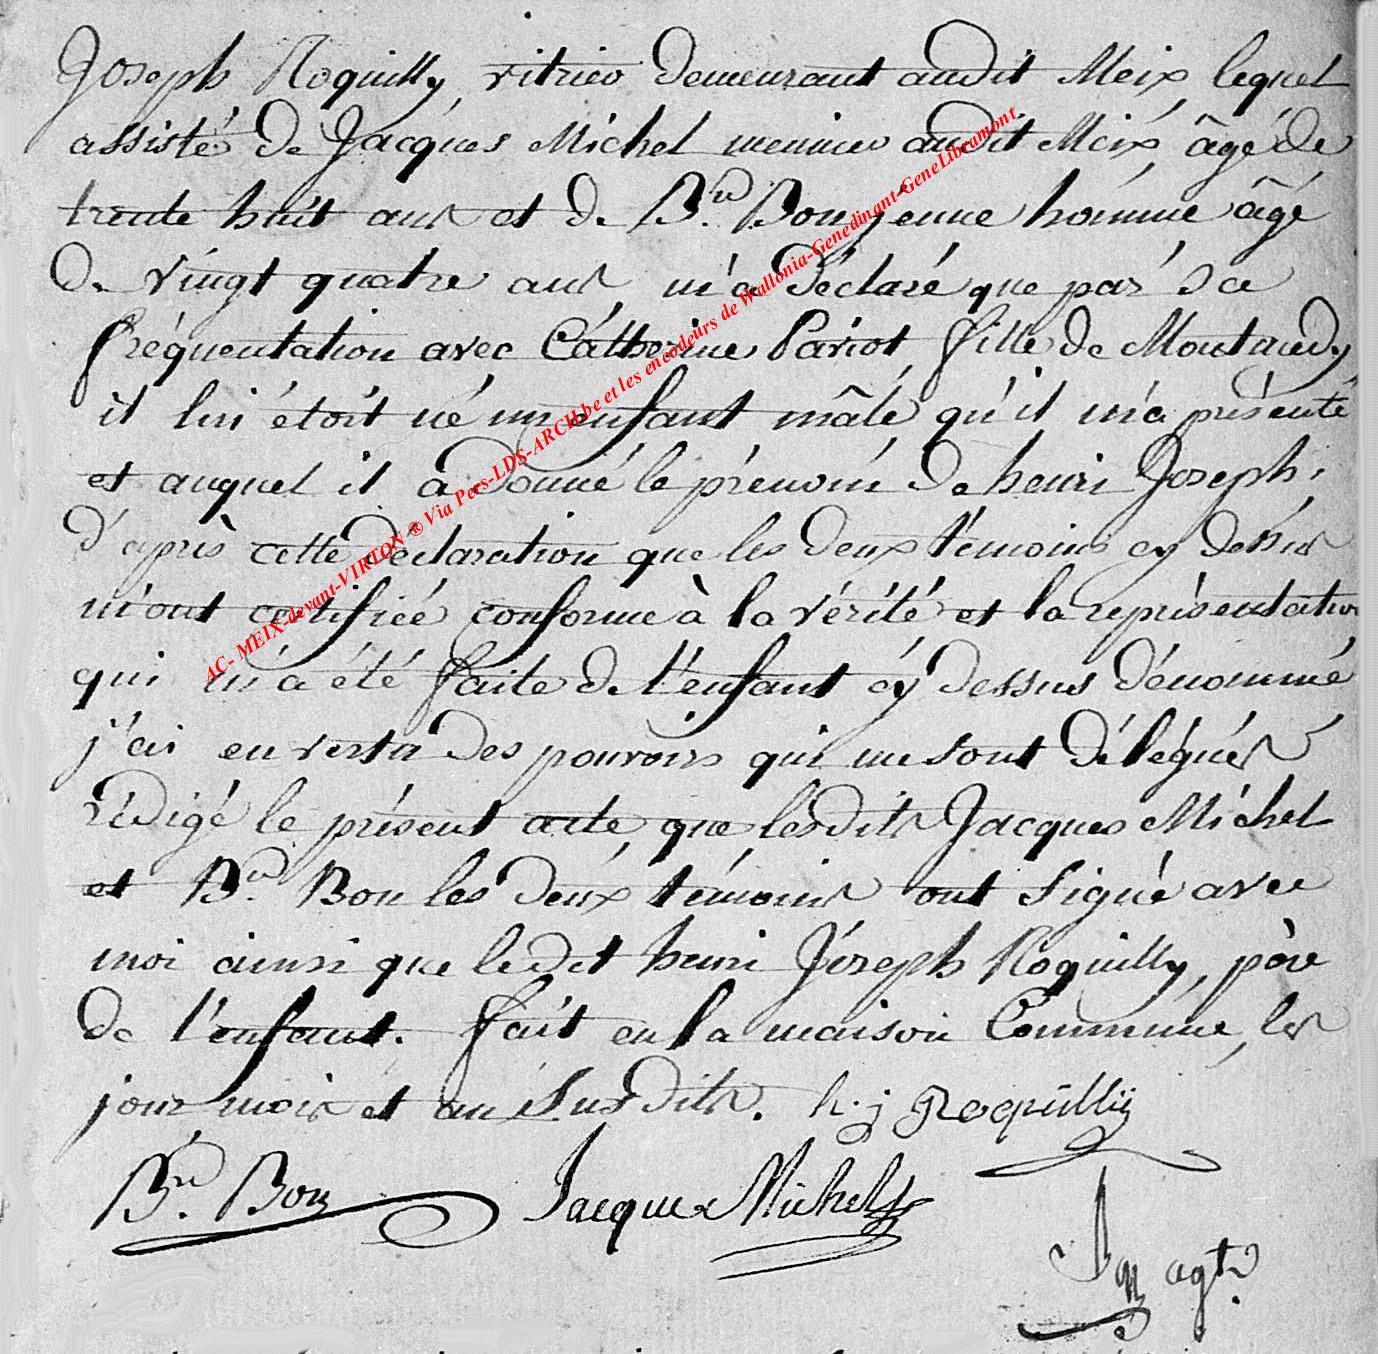 Joseph Roquilly, vitrier demeurant audit Meix lequel
assisté de Jacques Michel meunier audit Meix, âgé de
trente huit ans et de B.n Bon jeune homme âgé
de vingt quatre ans, m'a déclaré que par sa
fréquentation avec Catherine Pariot, fille de Montaudy
il lui étoit né un enfant mâle, qu'il m'a présenté
et auquel il a donné le prénom de henri Joseph,
d'après cette déclaration que les deux témoins cy dessus
m'ont certifiée conforme à la vérité et la représentation
qui m'a été faite de l'enfant cy dessus dénommé
j'ai en vertu des pouvoirs qui me sont délégués
rédigé le présent acte, que lesdits Jacques Michel
et B.n Bon les deux témoins ont signé avec
moi ainsi que ledit henri Joseph Roquilly, père
de l'enfant. fait en la maison Commune, les
jour mois et an susdits. h. j Roquilly
B.n Bon Jacques Michel
agt.
AC- MEIX-devant-VIRTON ® Via Pers-LDS-ARCH.be et les encodeurs de Wallonia-Genedinant-GeneLibramont.